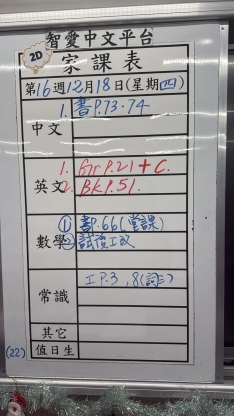 智愛中文平台
2D
家課表
第16週12月18日(星期四)
中文
1. 書P.73-74
英文
1. Gr P.21 + C.
2. BK P.51.
數學
① 書P.66(堂課)
② 試後工改
常識
工P.3, 8(詞三)
其它
(22)
值日生